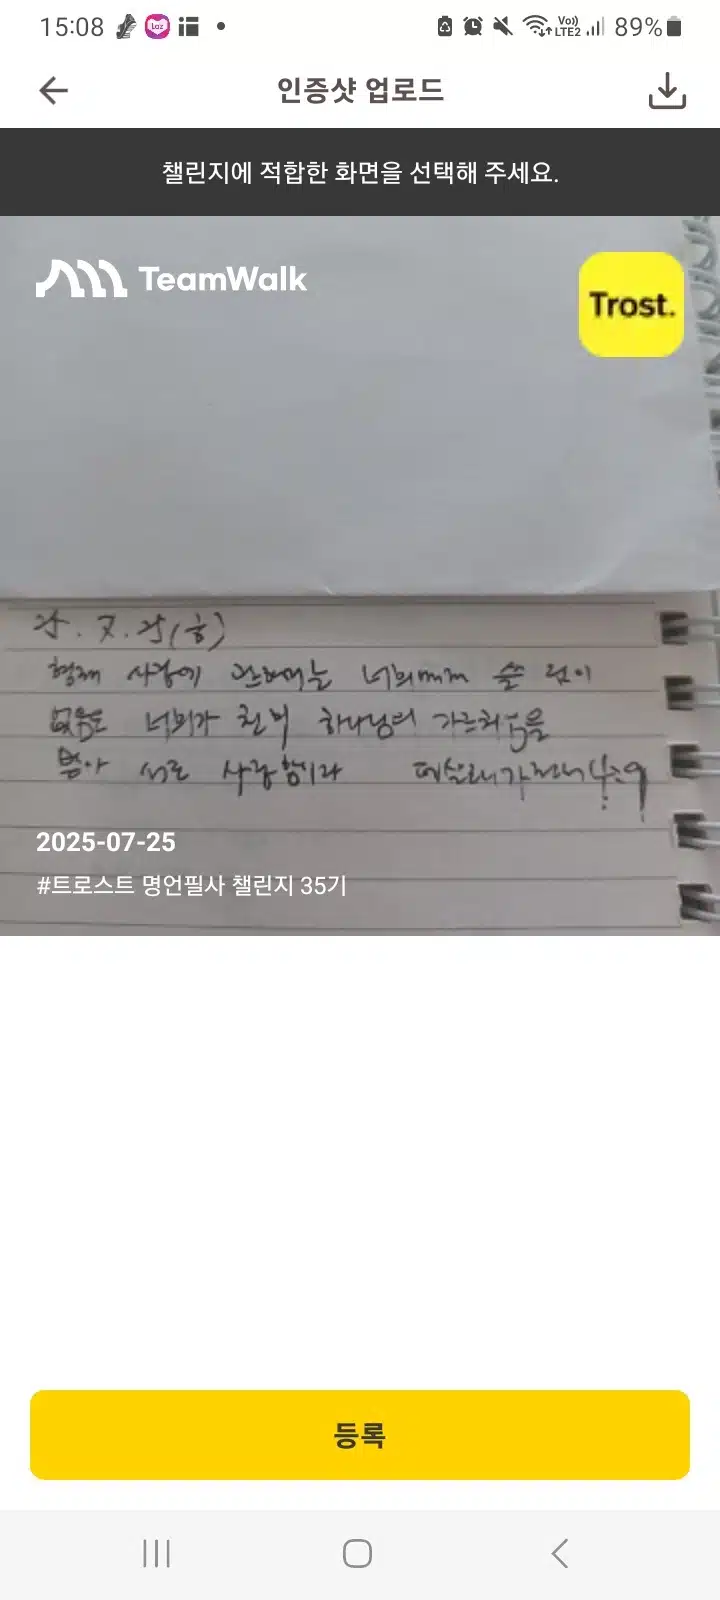 15:08 89%
Vo))
LTE2
인증샷 업로드
챌린지에 적합한 화면을 선택해 주세요.
TeamWalk
Trost.
25. 7. 25(
형제 사랑에 관하여는 너희에게 쓸 것이
없음은 너희가 친히 하나님의 가르치심을
받아 서로 사랑함이라 데살로니가전서 4:9
2025-07-25
#트로스트 명언필사 챌린지 35기
등록